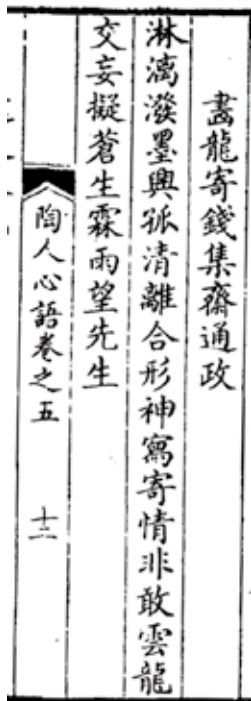 畵龍寄錢集齋通政
淋漓潑墨興孤清離合形神寫寄情非敢雲龍
交妄擬蒼生霖雨望先生
陶人心語卷之五
十二